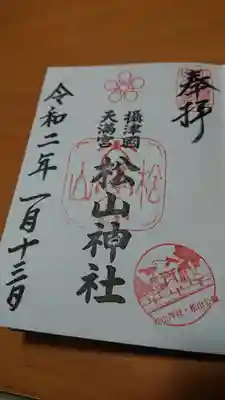 奉拝
攝津國
天満宮
松山神社
令和二年一月十三日